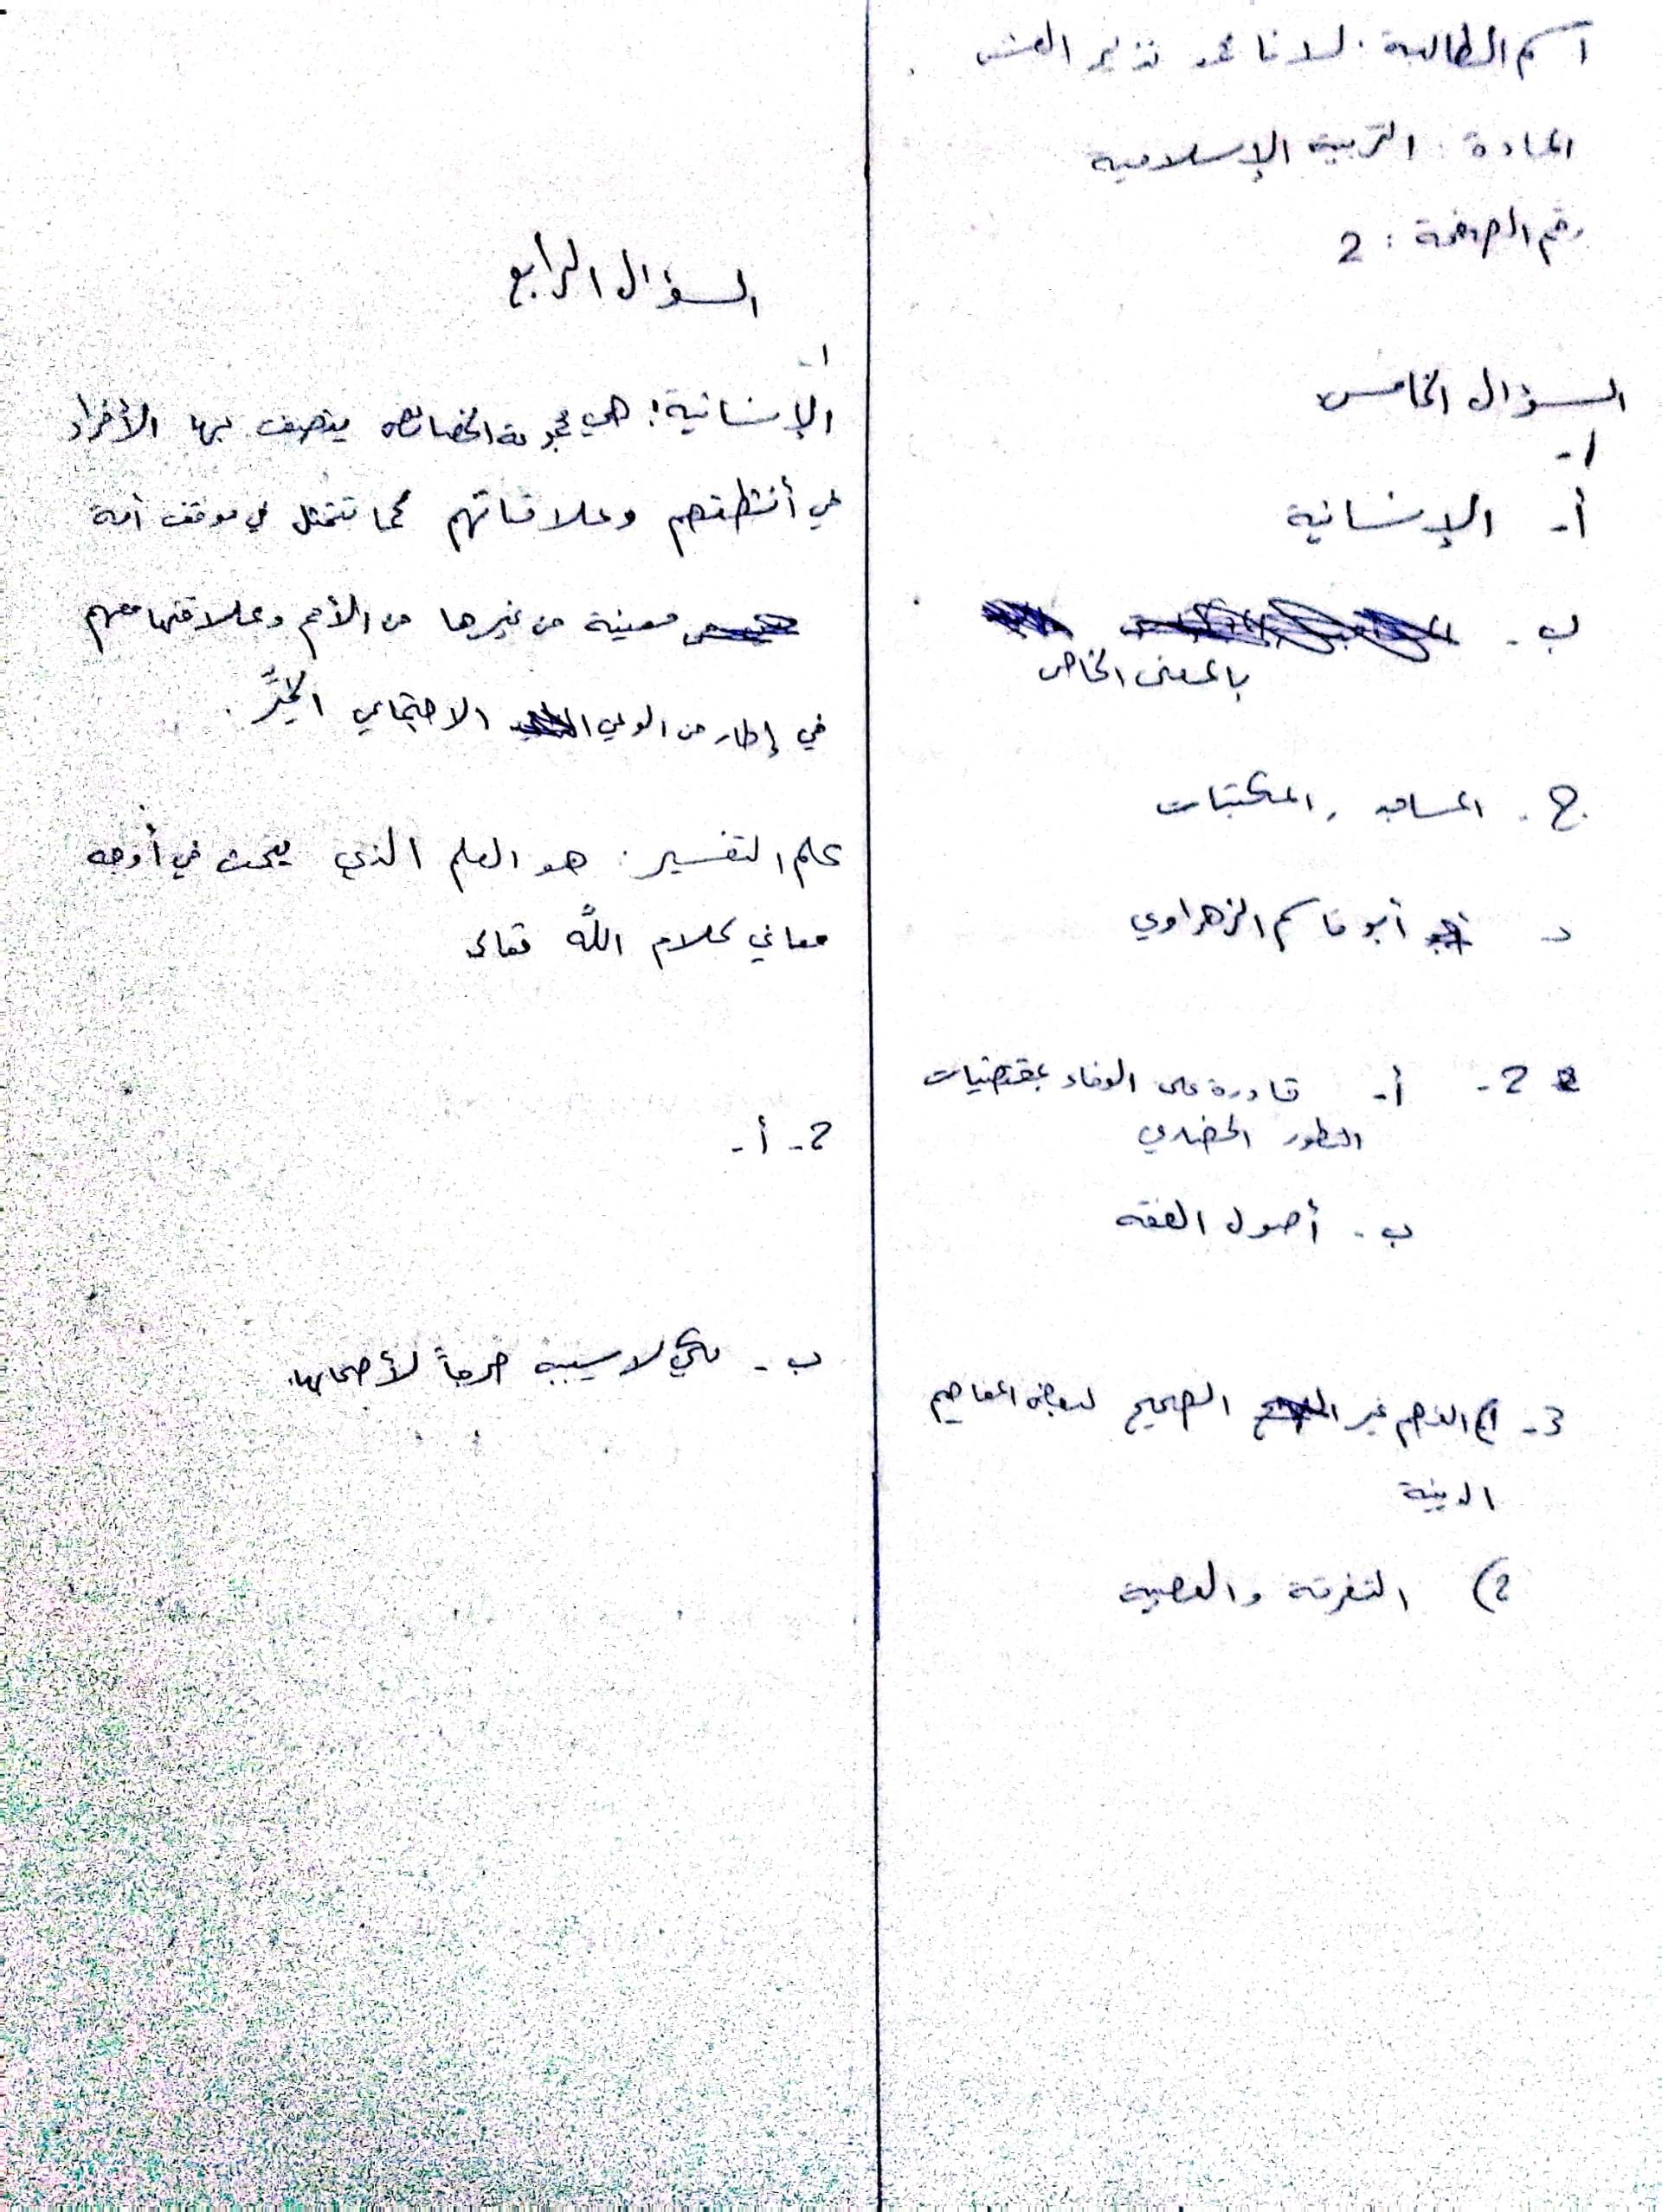 اسم الطالبة: لانا محمد نذير العش
المادة: التربية الإسلامية
رقم الصفحة: 2
السؤال الخامس
1-
أ- الإنسانية
ب-
بالمعنى الخاص
ج. المساجد، المكتبات
د أبو قاسم الزهراوي
2- أ- قادرة على الوفاء بمقتضيات
التطور الحضاري
ب. أصول الفقه
3- 1) الفهم غير الصحيح لبعض المفاهيم
الدينية
2) التفرقة والعصبية
السؤال الرابع
1-
الإنسانية: هي مجموعة الخصائص يتصف بها الأفراد
في أنشطتهم وعلاقاتهم كما تتمثل في موقف أمة
معينة من غيرها من الأمم وعلاقتها معهم
في إطار من الوعي الاجتماعي الخيِّر.
علم التفسير: هو العلم الذي يبحث في أوجه
معاني كلام الله تعالى
2- أ-
ب- لكي لا يسبب حرجاً لأصحابها.